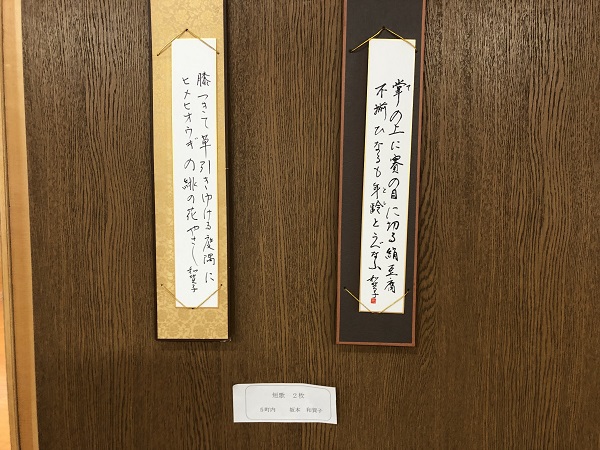 掌の上に賽の目に切る絹豆腐
不揃ひなるも年齢とうべなふ 和賀子
膝つきて草引きゆける庭隅に
ヒメヒオウギの緋の花やさし 和賀子
短歌 2枚
町内 坂本 和賀子